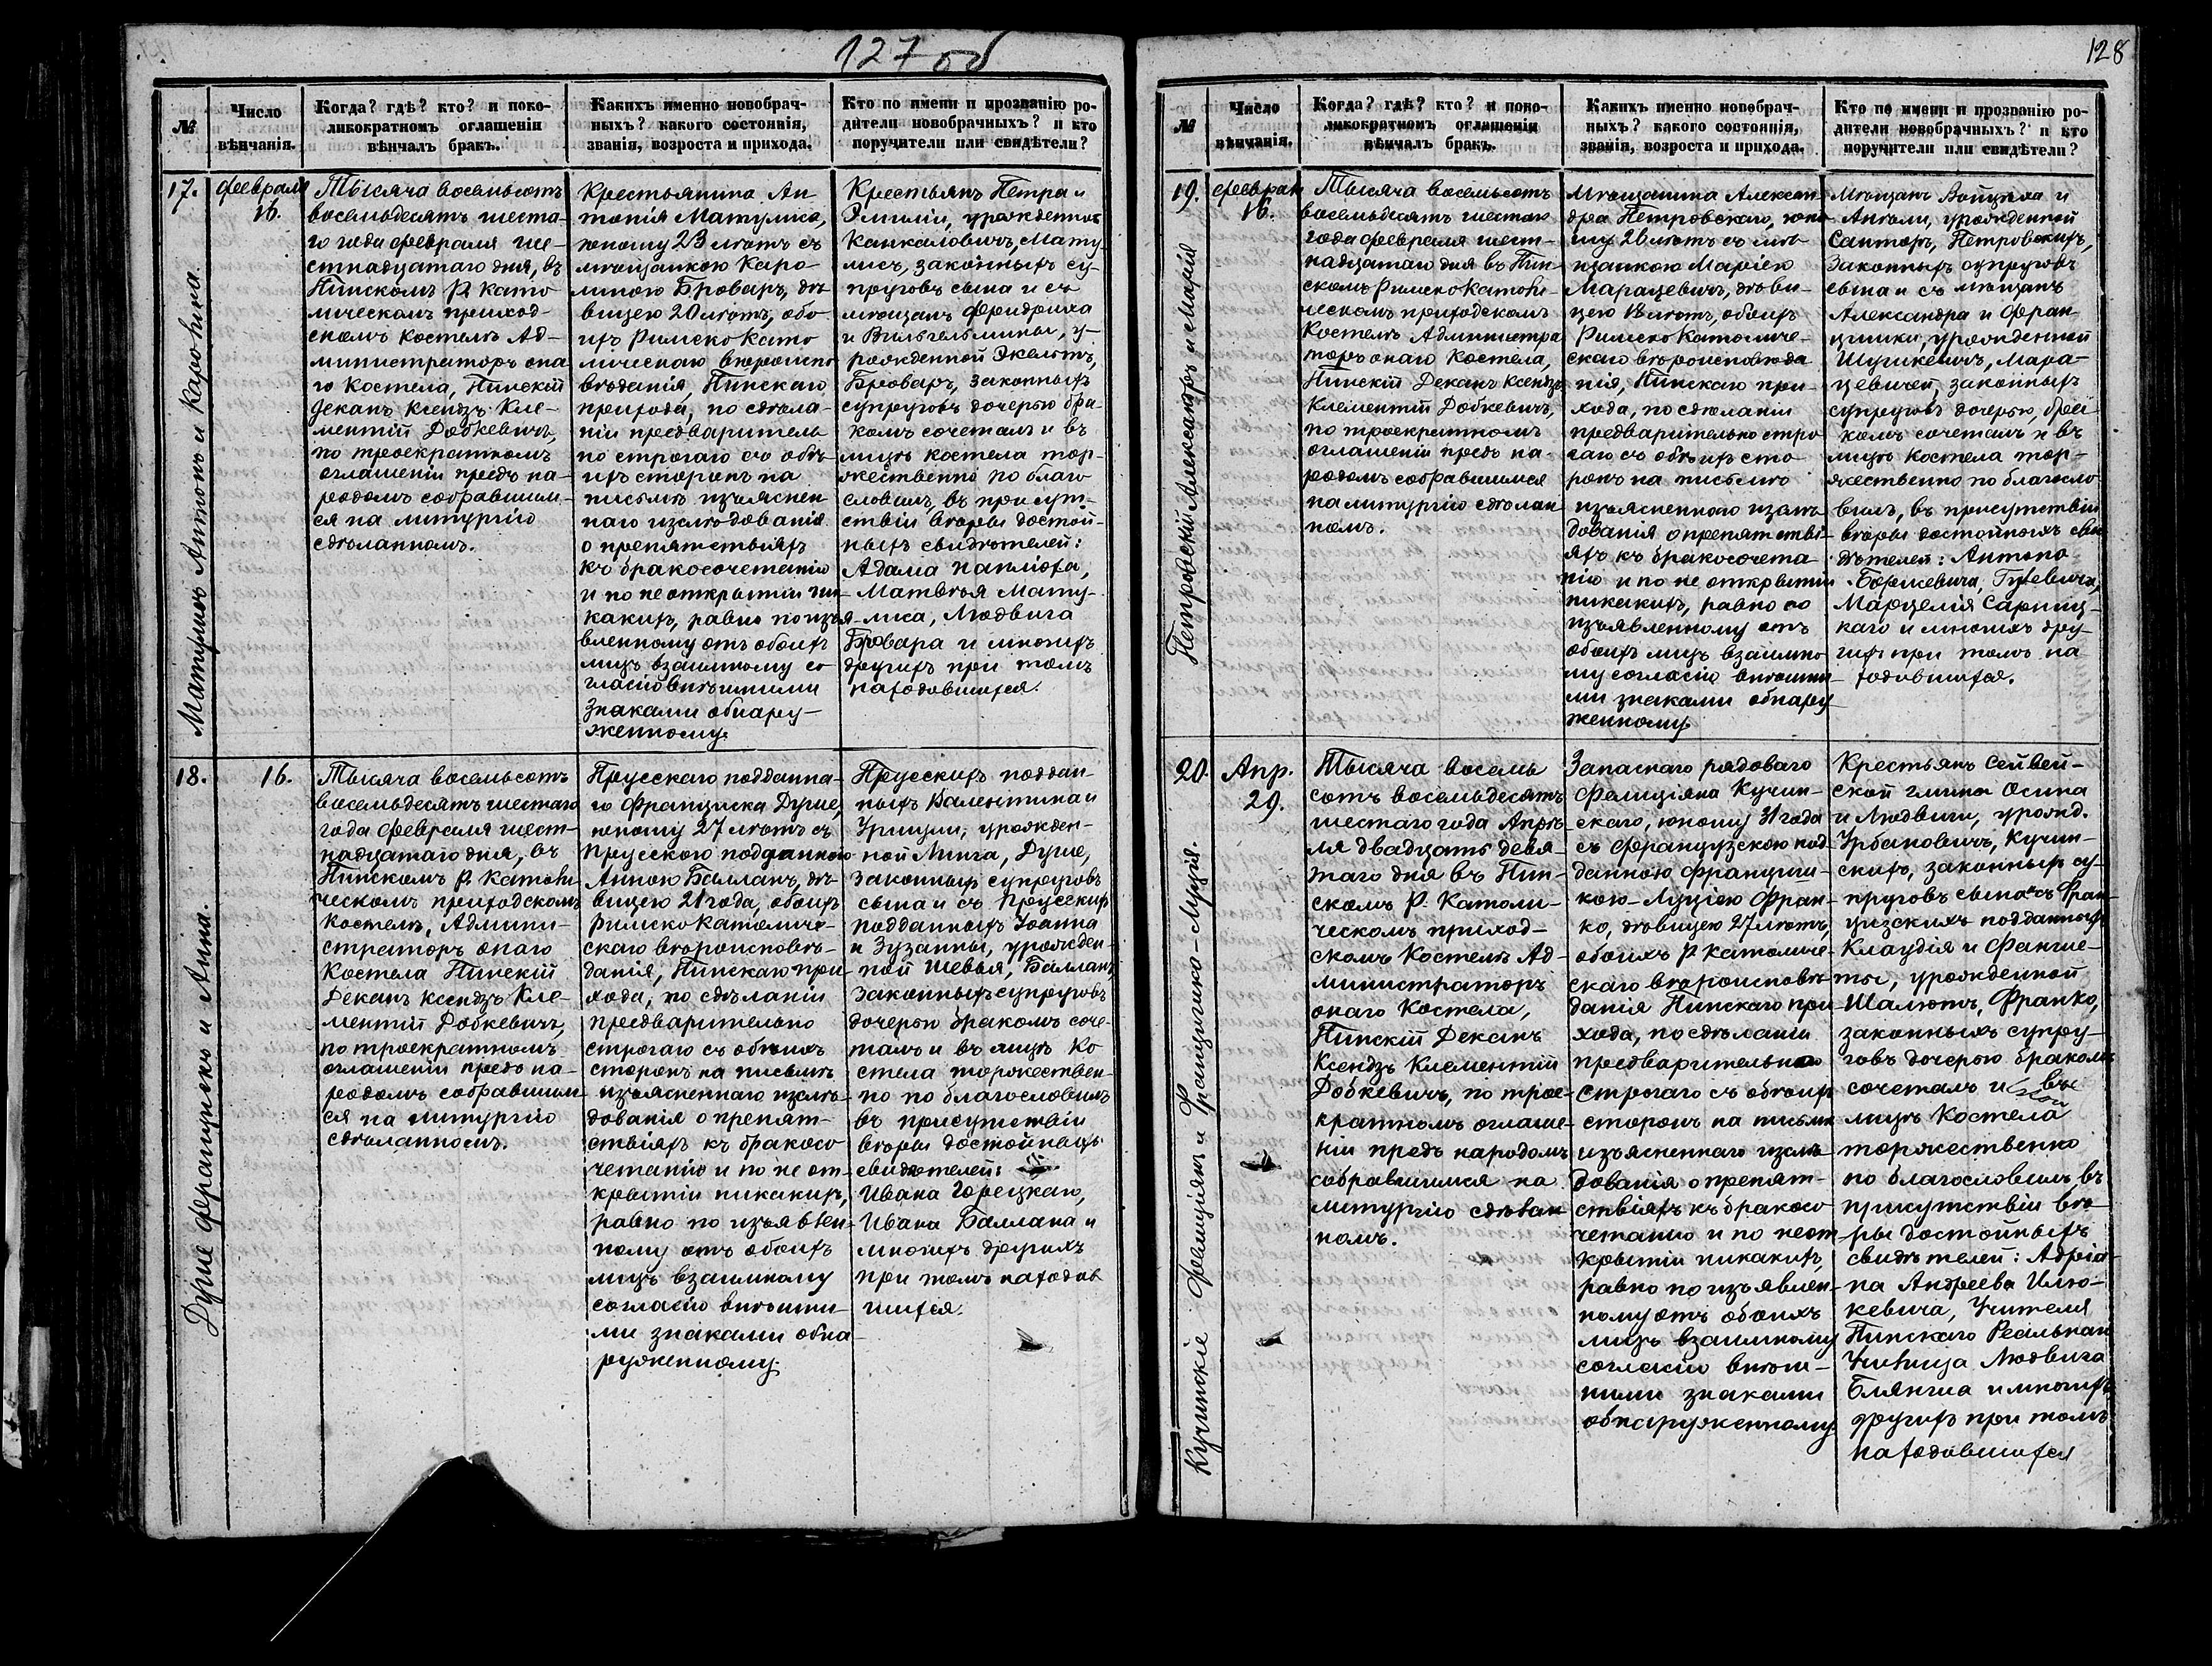 127 об
№
Число
вѣнчанія.
Когда? гдѣ? кто? и поко-
ликократномъ оглашеніи
вѣнчалъ бракъ.
Какихъ именно новобрач-
ныхъ? какого состоянія,
званія, возроста и прихода.
Кто по имени и прозванію ро-
дители новобрачныхъ? и кто
поручители или свидѣтели?
17.
Матулисъ Антонъ и Каролина.
февраля
16.
Тысяча восемьсотъ
восемьдесятъ шеста-
го года февраля ше-
стнадцатаго дня, въ
Пинскомъ Р. Като
лическомъ приход-
скомъ костелѣ Ад-
министраторъ она
го Костела, Пинскій
Деканъ Ксендзъ Кле-
ментій Добкевичъ,
по троекратномъ
оглашеніи предъ на-
родомъ собравшим-
ся на литургію
сдѣланномъ.
Крестьянина Ан
тонія Матулиса,
юношу 23 лѣтъ съ
мѣщанкою Каро-
линою Броваръ, дѣ
вицею 20 лѣтъ, обо
ихъ Римско Като
лическаго вѣроиспо
вѣданія, Пинскаго
прихода, по сдѣла-
ніи предваритель
но строгаго съ обѣ-
ихъ сторонъ на
письмѣ изъяснен-
наго изслѣдованія
о препятствіяхъ
къ бракосочетанію
и по не открытіи ни-
какихъ, равно по изъя-
вленному отъ обоихъ
лицъ взаимному со
гласію внѣшними
знаками обнару-
женному.
Крестьянъ Петра и
Эмиліи, урожденной
Канкаловичъ, Мату
лисъ, законныхъ су-
пруговъ сына и съ
мѣщанъ Фридриха
и Вильгельмины, у-
рожденной Экельтъ,
Броваръ, законныхъ
супруговъ дочерью бра-
комъ сочеталъ и въ
лицѣ костела тор-
жественно по благо
словилъ, въ присут-
ствіи вѣры достой-
ныхъ свидѣтелей:
Адама Наплюха,
Матвѣя Мату-
лиса, Людвига
Бровара и многихъ
другихъ при томъ
находившихся.
18.
Душе Францискъ и Анна.
16.
Тысяча восемьсотъ
восемьдесятъ шестаго
года февраля шест-
надцатаго дня, въ
Пинскомъ Р. Католи-
ческомъ приходскомъ
Костелѣ, Админи-
страторъ онаго
Костела Пинскій
Деканъ Ксендзъ Кле-
ментій Добкевичъ,
по троекратномъ
оглашеніи предъ на-
родомъ собравшим
ся на литургію
сдѣланномъ.
Прусскаго подданна-
го Франциска Душе,
юношу 27 лѣтъ съ
Прусскою подданною
Анною Балланъ, дѣ-
вицею 21 года, обоихъ
Римско Католиче-
скаго вѣроисповѣ-
данія, Пинскаго при-
хода, по сдѣланіи
предварительно
строгаго съ обѣихъ
сторонъ на письмѣ
изъясненнаго изслѣ-
дованія о препят-
ствіяхъ къ бракосо
четанію и по не от-
крытіи никакихъ,
равно по изъявлен-
ному отъ обоихъ
лицъ взаимному
согласію внѣшни-
ми знаками обна-
руженному.
Прусскихъ поддан-
ныхъ Валентина и
Уршули, урожден-
ной Линга, Душе,
законныхъ супруговъ
сына и съ Прусскихъ
подданныхъ Іоанна
и Зузанны, урожден-
ной Шевья, Балланъ,
законныхъ супруговъ
дочерью бракомъ соче-
талъ и въ лицѣ Ко
стела торжествен-
но по благословилъ
въ присутствіи
вѣры достойныхъ
свидѣтелей:
Ивана Горецкаго,
Ивана Баллана и
многихъ другихъ
при томъ находив
шихся.
128
№
Число
вѣнчанія.
Когда? гдѣ? кто? и поко-
ликократномъ оглашеніи
вѣнчалъ бракъ.
Какихъ именно новобрач-
ныхъ? какого состоянія,
званія, возроста и прихода.
Кто по имени и прозванію ро-
дители новобрачныхъ? и кто
поручители или свидѣтели?
19.
Петровскій Александръ и Марія
феврал
16.
Тысяча восемьсотъ
восемьдесятъ шестаго
года февраля шест-
надцатаго дня въ Пин-
скомъ Римско Католи-
ческомъ приходскомъ
Костелѣ Администра
торъ онаго Костела,
Пинскій Деканъ Ксендзъ
Клементій Добкевичъ,
по троекратномъ
оглашеніи предъ на-
родомъ собравшимся
на литургію сдѣлан
номъ.
Мѣщанина Алексан
дра Петровскаго, юно
шу 26 лѣтъ съ мѣ-
щанкою Маріею
Марацевичъ, дѣви-
цею 18 лѣтъ, обоихъ
Римско Католиче-
скаго вѣроисповѣда
нія, Пинскаго при-
хода, по сдѣланіи
предварительно стро
гаго съ обѣихъ сто
ронъ на письмѣ
изъясненного изслѣ
дованія о препятстві-
яхъ къ бракосочета
нію и по не открытіи
никакихъ, равно по
изъявленному отъ
обоихъ лицъ взаимно
му согласію внѣшни
ми знаками обнару
женному.
Мѣщанъ Войцѣха и
Анѣли, урожденной
Санторъ, Петровскихъ,
законныхъ супруговъ
сына и съ мѣщанъ
Александра и Фран-
цишки, урожденной
Шушкевичъ, Мара-
цевичей, законныхъ
супруговъ дочерью, бра
комъ сочеталъ и въ
лицѣ Костела тор-
жественно по благосло
вилъ, въ присутствіи
вѣры достойныхъ сви
дѣтелей: Антона
Марцелія Сарниц-
каго и многихъ дру-
гихъ при томъ на
ходившихся.
20.
Кучинскіе Фелиціянъ и Францишка-Луція.
Апр.
29.
Тысяча восемь
сотъ восемьдесятъ
шестаго года Апрѣ
ля двадцать девя-
таго дня въ Пин-
скомъ Р. Католи-
ческомъ приход-
скомъ Костелѣ Ад-
министраторъ
онаго Костела,
Пинскій Деканъ
Ксендзъ Клементій
Добкевичъ, по трое-
кратномъ оглаше-
ніи предъ народомъ
собравшимся на
литургію сдѣлан
номъ.
Запаснаго рядоваго
Фелиціяна Кучин-
скаго, юношу 31 года
съ французскою под
данною Францииш-
кою-Луціею Фран-
ко, дѣвицею 27 лѣтъ,
обоихъ Р. Католиче-
скаго вѣроисповѣ
данія Пинскаго при
хода, по сдѣланіи
предварительно
строгаго съ обѣихъ
сторонъ на письмѣ
изъясненнаго изслѣ
дованія о препят-
ствіяхъ къ бракосо
четанію и по неот
крытіи никакихъ,
равно по изъявлен-
ному отъ обоихъ
лицъ взаимному
согласію внѣш-
ними знаками
обнаруженному
Крестьянъ Сейвей-
ской гмины Осипа
и Людвиги, урожд.
Урбановичъ, Кучин-
скихъ, законныхъ су-
пруговъ сына съ Фран
цузскихъ подданныхъ
Клаудія и Фангше-
ты, урожденной
Шалютъ, Франко,
законныхъ супру-
говъ дочерью бракомъ
сочеталъ и въ
лицѣ Костела
торжественно
по благословилъ, въ
присутствіи вѣ-
ры достойныхъ
свидѣтелей: Адріа
на Андреева Илю-
кевича, Учителя
Пинскаго Реальнаго
Училища Людвига
и многихъ
другихъ при томъ
находившихся